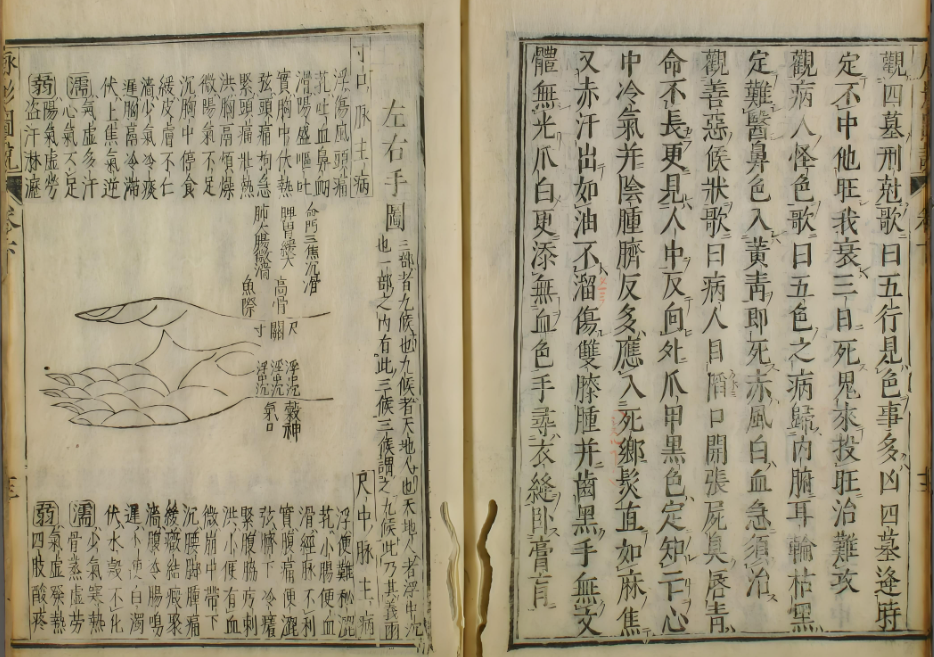 觀四墓刑尅歌曰五行見色事多凶四墓逢時
定不中他旺我衰三日死鬼來投旺治難攻
觀病人怪色歌曰五色之病歸內腑耳輪枯黑
定難醫鼻色入黃青即死赤風白血急須治
觀善惡候狀歌曰病人目 口開張屍臭唇青
命不長更見人中反向外爪甲黑色定知亡心
中冷氣并陰腫臍反多應入死鄉髮直如麻焦
又赤汗出如油不溜傷雙膝腫并齒黑手無文
體無光爪白更添無血色手尋衣縫臥膏肓
左右手圖
三部者九候也九候者天地人也天地人者浮中沉
也一部之內有此三候三候謂之九候此乃其義爾
寸口脉主病
浮傷風頭痛
芤吐血鼻衄
滑陽盛嘔吐
實胸中伏熱
弦頭痛拘急
緊頭痛壯熱
洪胸膈煩燥
微陽氣不足
沉胸中停食
緩皮膚不仁
濇少氣冷痰
遲胸膈冷滯
伏上焦氣逆
濡氣虛多汗
心氣不足
弱陽氣虛勞
盜汗淋瀝
命門三焦沉滑
脾胃緩大
肺大腸微濇
魚際
高骨
尺
關
寸
浮中沉
浮中沉
浮中沉
穀神
氣口
尺中脉主病
浮便難秘澀
芤小腸便血
滑經脉不利
實腹痛便澀
弦臍下冷癃
緊腹脇疼刺
洪小便有血
微崩中帶下
沉腰脚腫痛
緩癥結瘕聚
濇腹冷腸鳴
遲小便白濁
伏水穀不化
濡少氣寒熱
骨蒸虛勞
弱氣虛發熱
四肢酸疼